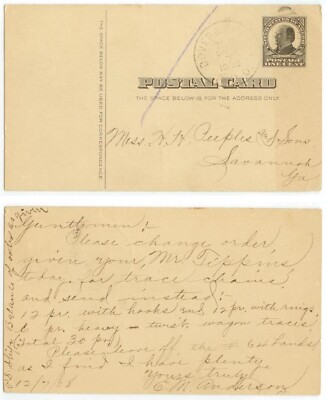 THE SPACE BELOW MAY BE USED FOR CORRESPONDENCE.
POSTAL CARD
THE SPACE BELOW IS FOR THE ADDRESS ONLY.
POSTAGE
ONE CENT
Mess. H. H. Peeples & Sons
Savannah
Ga
Gentlemen:
Please change order
given your Mr Tippins
today for trace chains
and send instead:
12 pr. with hooks and 12 pr. with rings
6 pr. heavy twist wagon traces
(total 30 pr)
Please leave off the
as I find I have plenty
Yours truly
C. M. Anderson
12/7/08
P.S. Ship Balance of order as given